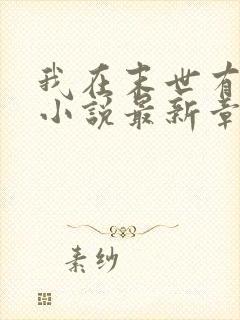 我在末世有
小说最新章
素纱